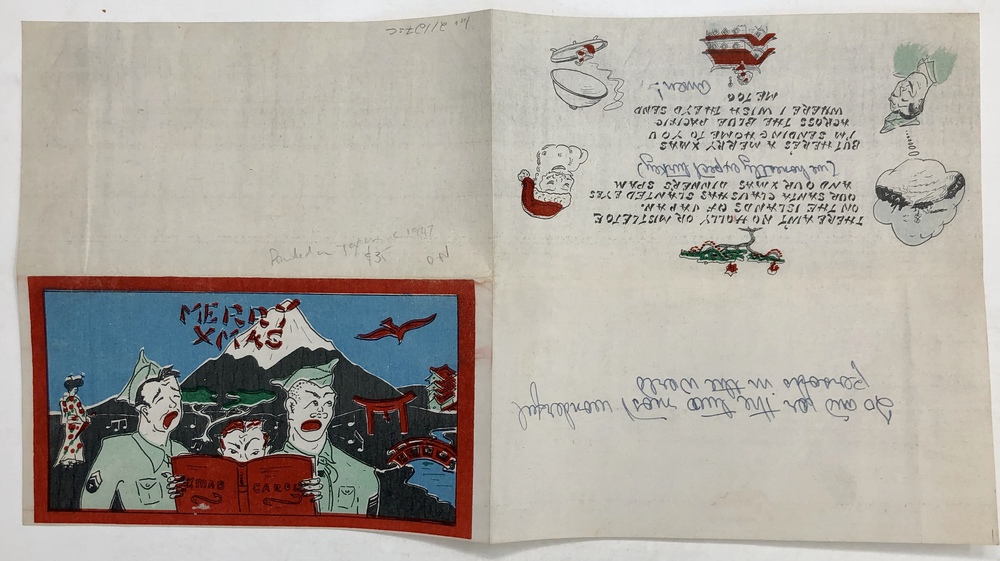 MERRY
XMAS
XMAS CAROLS
Printed in Japan c 1947
$35
the two most wonderful
in the world
THERE AIN'T NO HOLLY OR MISTLETOE
ON THE ISLANDS OF JAPAN.
OUR SANTA CLAUS HAS SLANTED EYES
AND OUR XMAS DINNERS SPAM
(we honestly expect turkey)
BUT HERE'S A MERRY XMAS
I'M SENDING HOME TO YOU
ACROSS THE BLUE PACIFIC
WHERE I WISH THEY'D SEND
ME TOO
Amen!